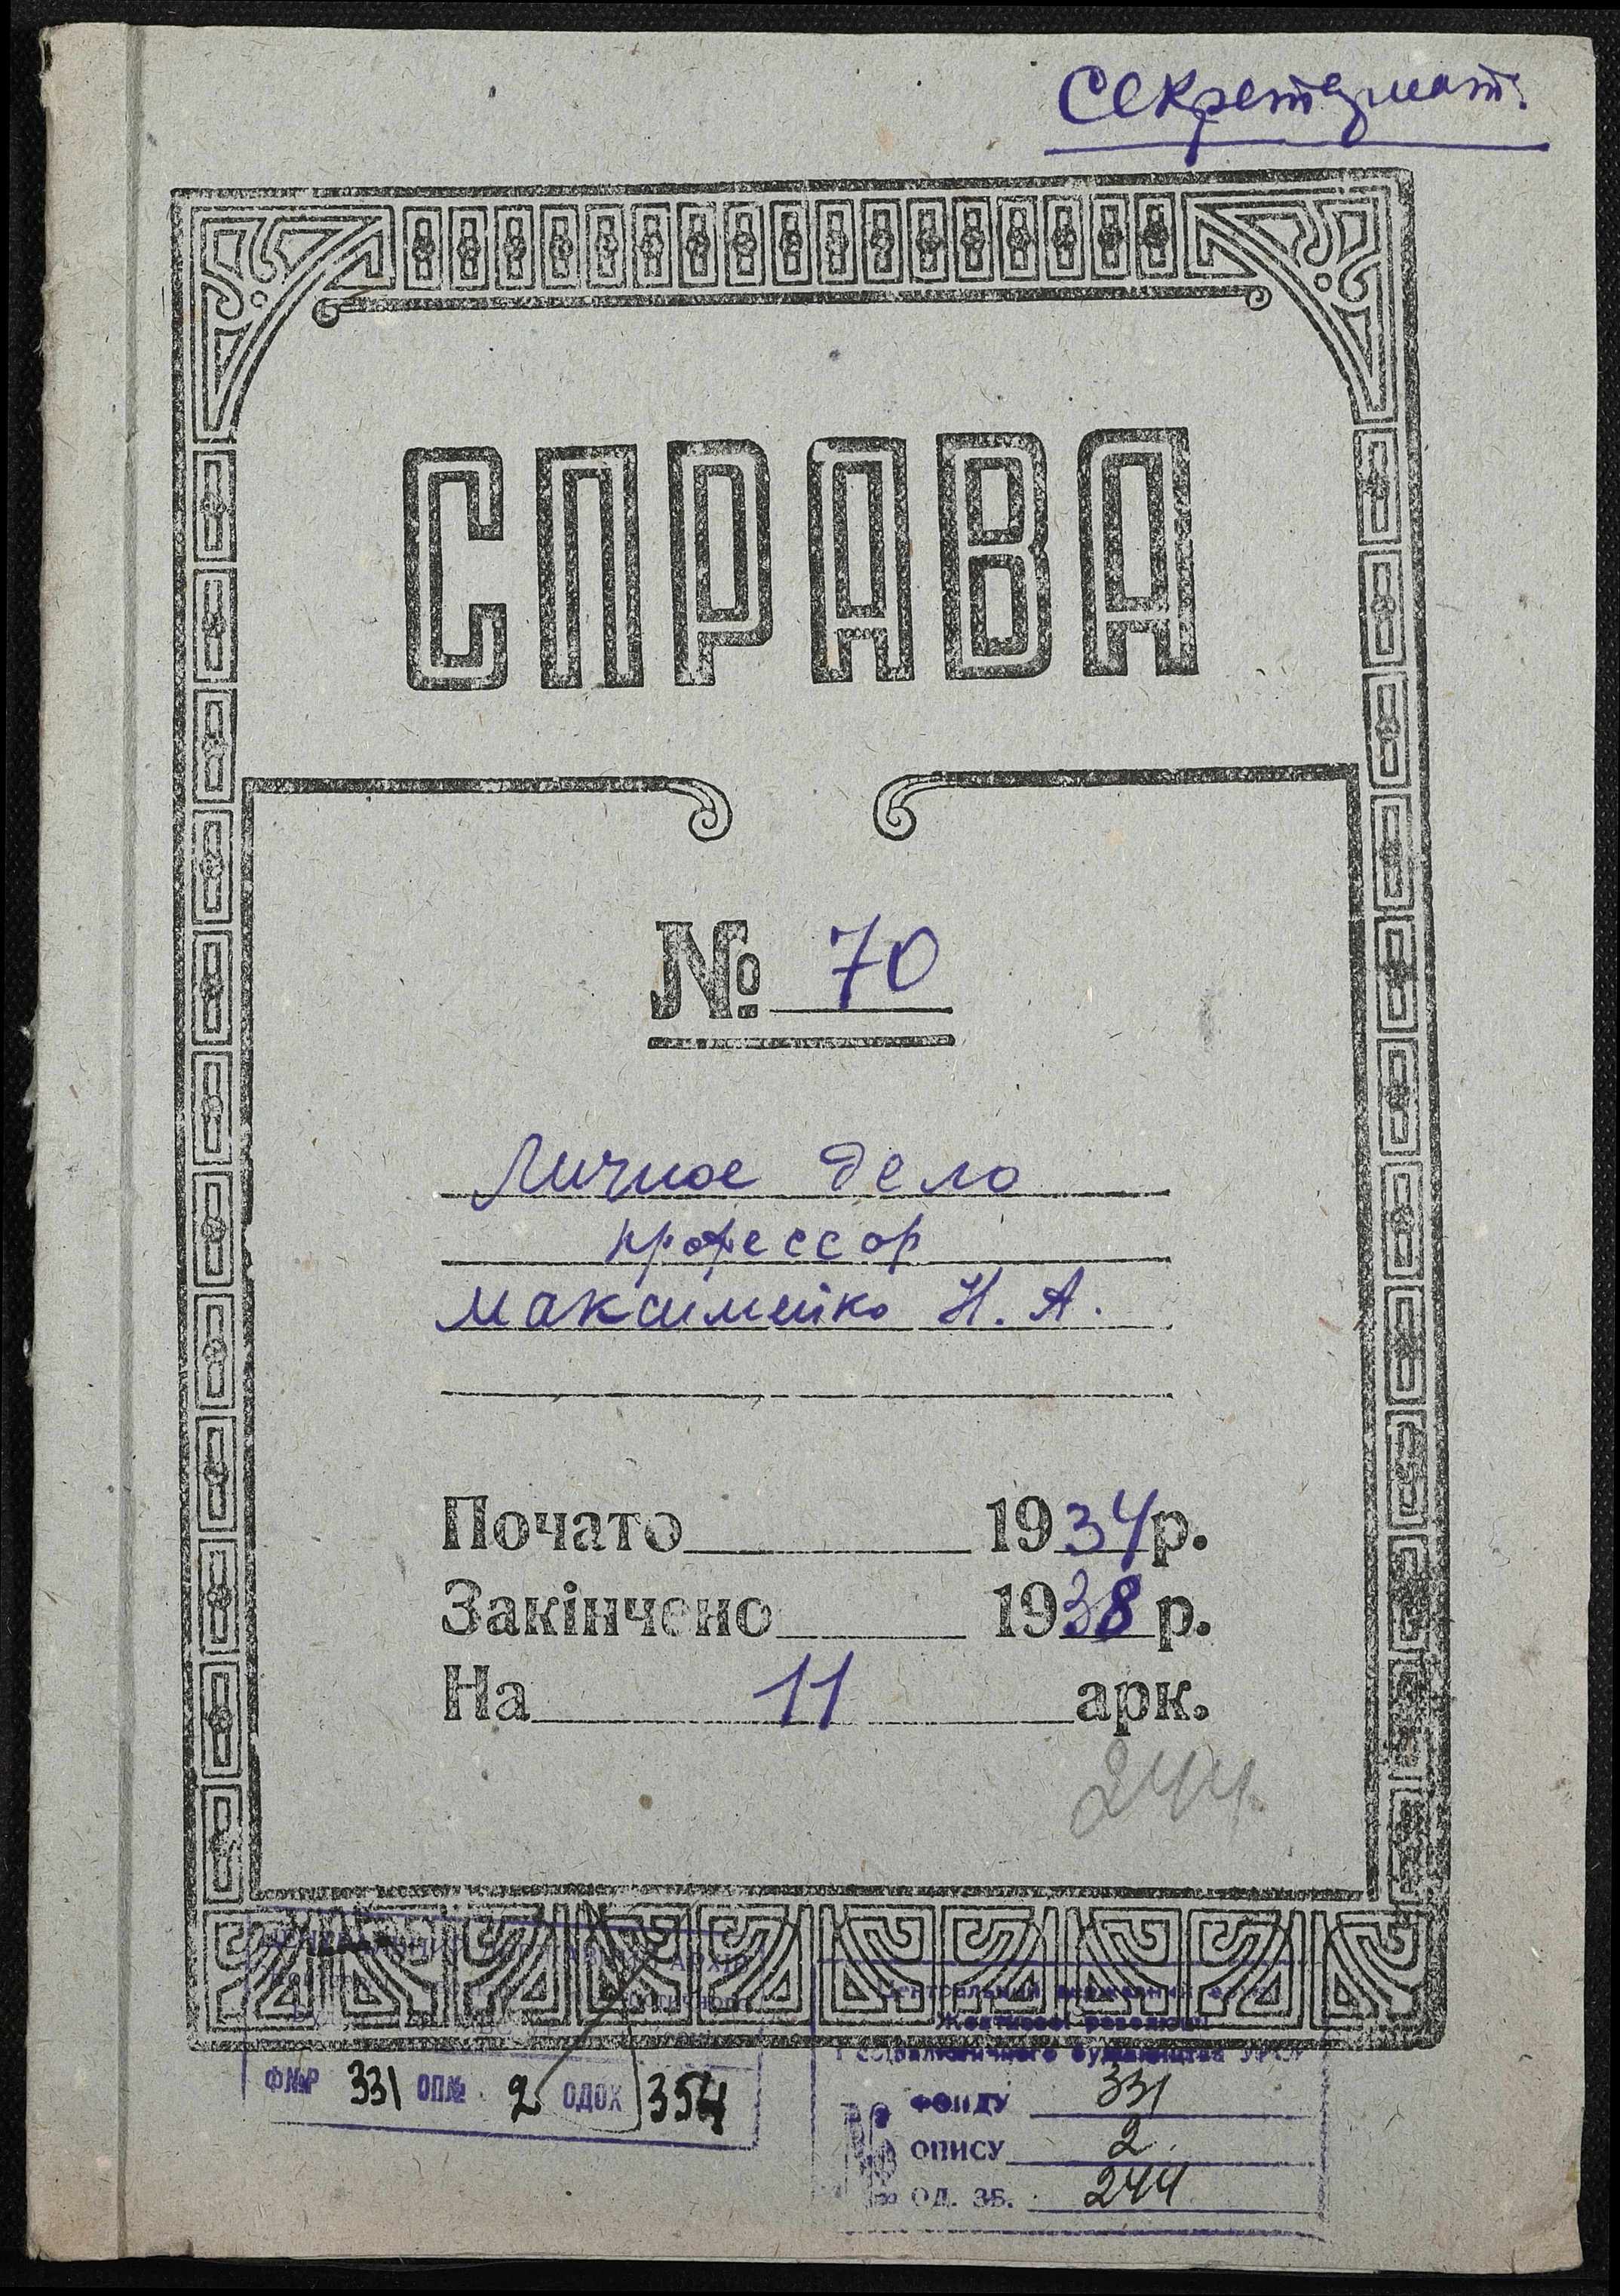 Секретариат.
СПРАВА
№ 70
Личное дело
профессор
Максимейко Н. А.
Почато 1934 р.
Закінчено 1938 р.
На 11 арк.
244
ФNoР 331 ОПNo 2 ОДОХ 354
Центральний державний
Жовтневої революції
і соціалістичного будівництва УРСР
№
ФОНДУ 331
ОПИСУ 2
ОД. ЗБ. 244